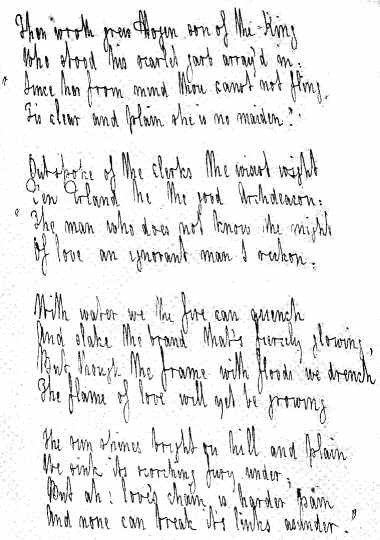 Then wroth grew Mogen son of the King
Who stood his scarlet garb array'd in:
"Since her from mind thou canst not fling,
Tis clear and plain she is no maiden."

Outspoke of the clerks the wisest wight
E'en Erland he the good Archdeacon:
"The man who does not know the might
Of love an ignorant man I reckon.

With water we the fire can quench
And slake the brand that's fiercely glowing,
But though the frame with floods we drench
The flame of love will yet be growing

The sun shines bright on hill and plain
We sink its scorching fury under,
But ah! love's chain is harder pain
And none can break its links asunder."